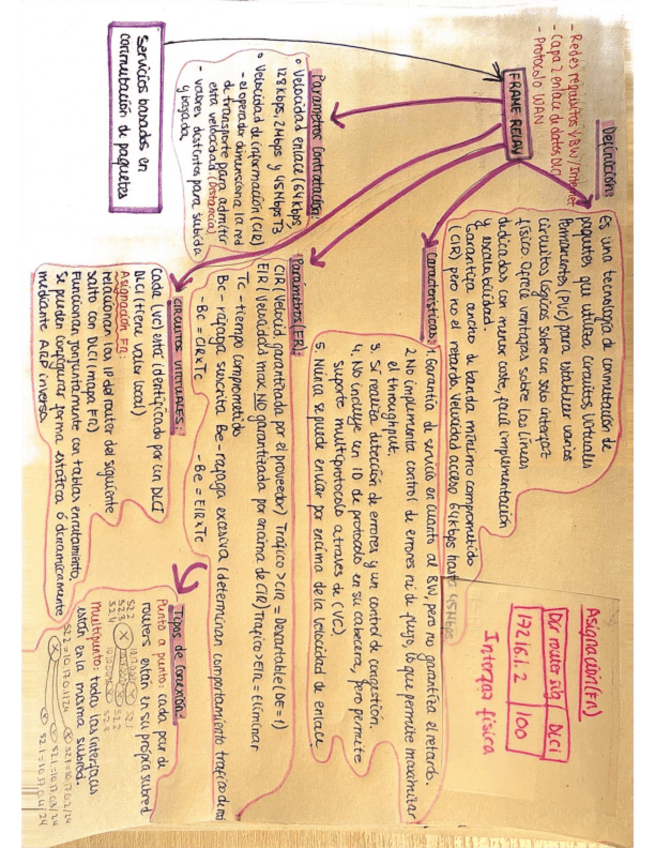 Servicios basados en
conmutación de paquetes
FRAME RELAY
- Redes requisitos ↓BW / Internet
- Capa 2 enlace de datos DLCI
- Protocolo WAN
Definición:
Es una tecnología de conmutación de
paquetes que utiliza circuitos virtuales
permanentes (PVC) para establecer varios
circuitos lógicos sobre un solo interfaz
físico. Ofrece ventajas sobre las líneas
dedicadas con menor coste, fácil implementación
y escalabilidad.
Garantiza ancho de banda mínimo comprometido
(CIR) pero no el retardo. Velocidad acceso 64kbps hasta 45Mbps
Características:
1. Garantía de servicio en cuanto al BW, pero no garantiza el retardo.
2. No implementa control de errores ni de flujo, lo que permite maximizar
el throughput.
3. Si realiza detección de errores y un control de congestión.
4. No incluye un ID de protocolo en su cabecera, pero permite
soporte multiprotocolo a través de (VC).
5. Nunca se puede enviar por encima de la velocidad de enlace
Parámetros Contratación:
° Velocidad enlace (64kbps,
128kbps, 2Mbps y 45Mbps T3
° Velocidad de información (CIR)
- el operador dimensiona la red
de transporte para admitir
esta velocidad (Distancia)
- valores distintos para subida
y bajada
Parámetros (FR):
CIR (Velocid garantizada por el proveedor) Tráfico > CIR = Descartable (DE=1)
EIR (Velocidad max NO garantizada por encima de CIR) Trafico > EIR = Eliminar
Tc - tiempo comprometido
Bc - ráfaga suscrita Be - rafaga excesiva (determinan comportamiento trafico de
- Bc = CIR x Tc - Be = EIR x Tc
CIRCUITOS VIRTUALES:
Cada (VC) está identificado por un DLCI
DLCI (tiene valor local)
Asignación FR:
relacionar los IP del router del siguiente
salto con DLCI (mapa FR)
Funcionan conjuntamente con tablas enrutamiento,
Se pueden configurar forma estática ó dinámicamente
mediante ARP inverso
Tipos de Conexión:
Punto a punto: cada par de
routers están en su propia subred
Multipunto: todas las interfaces
están en la misma subred.
S2.2
S2.3
S2.4
S2.1
S2.2
S2.3
S2.2=10.17.0.1/24
S2.1=10.17.0.2/24
S2.1=10.17.0.3/24
S2.1=10.17.0.4/24
Asignación (FR)
Dir router sig DLCI
172.16.1.2 100
Interfaz física